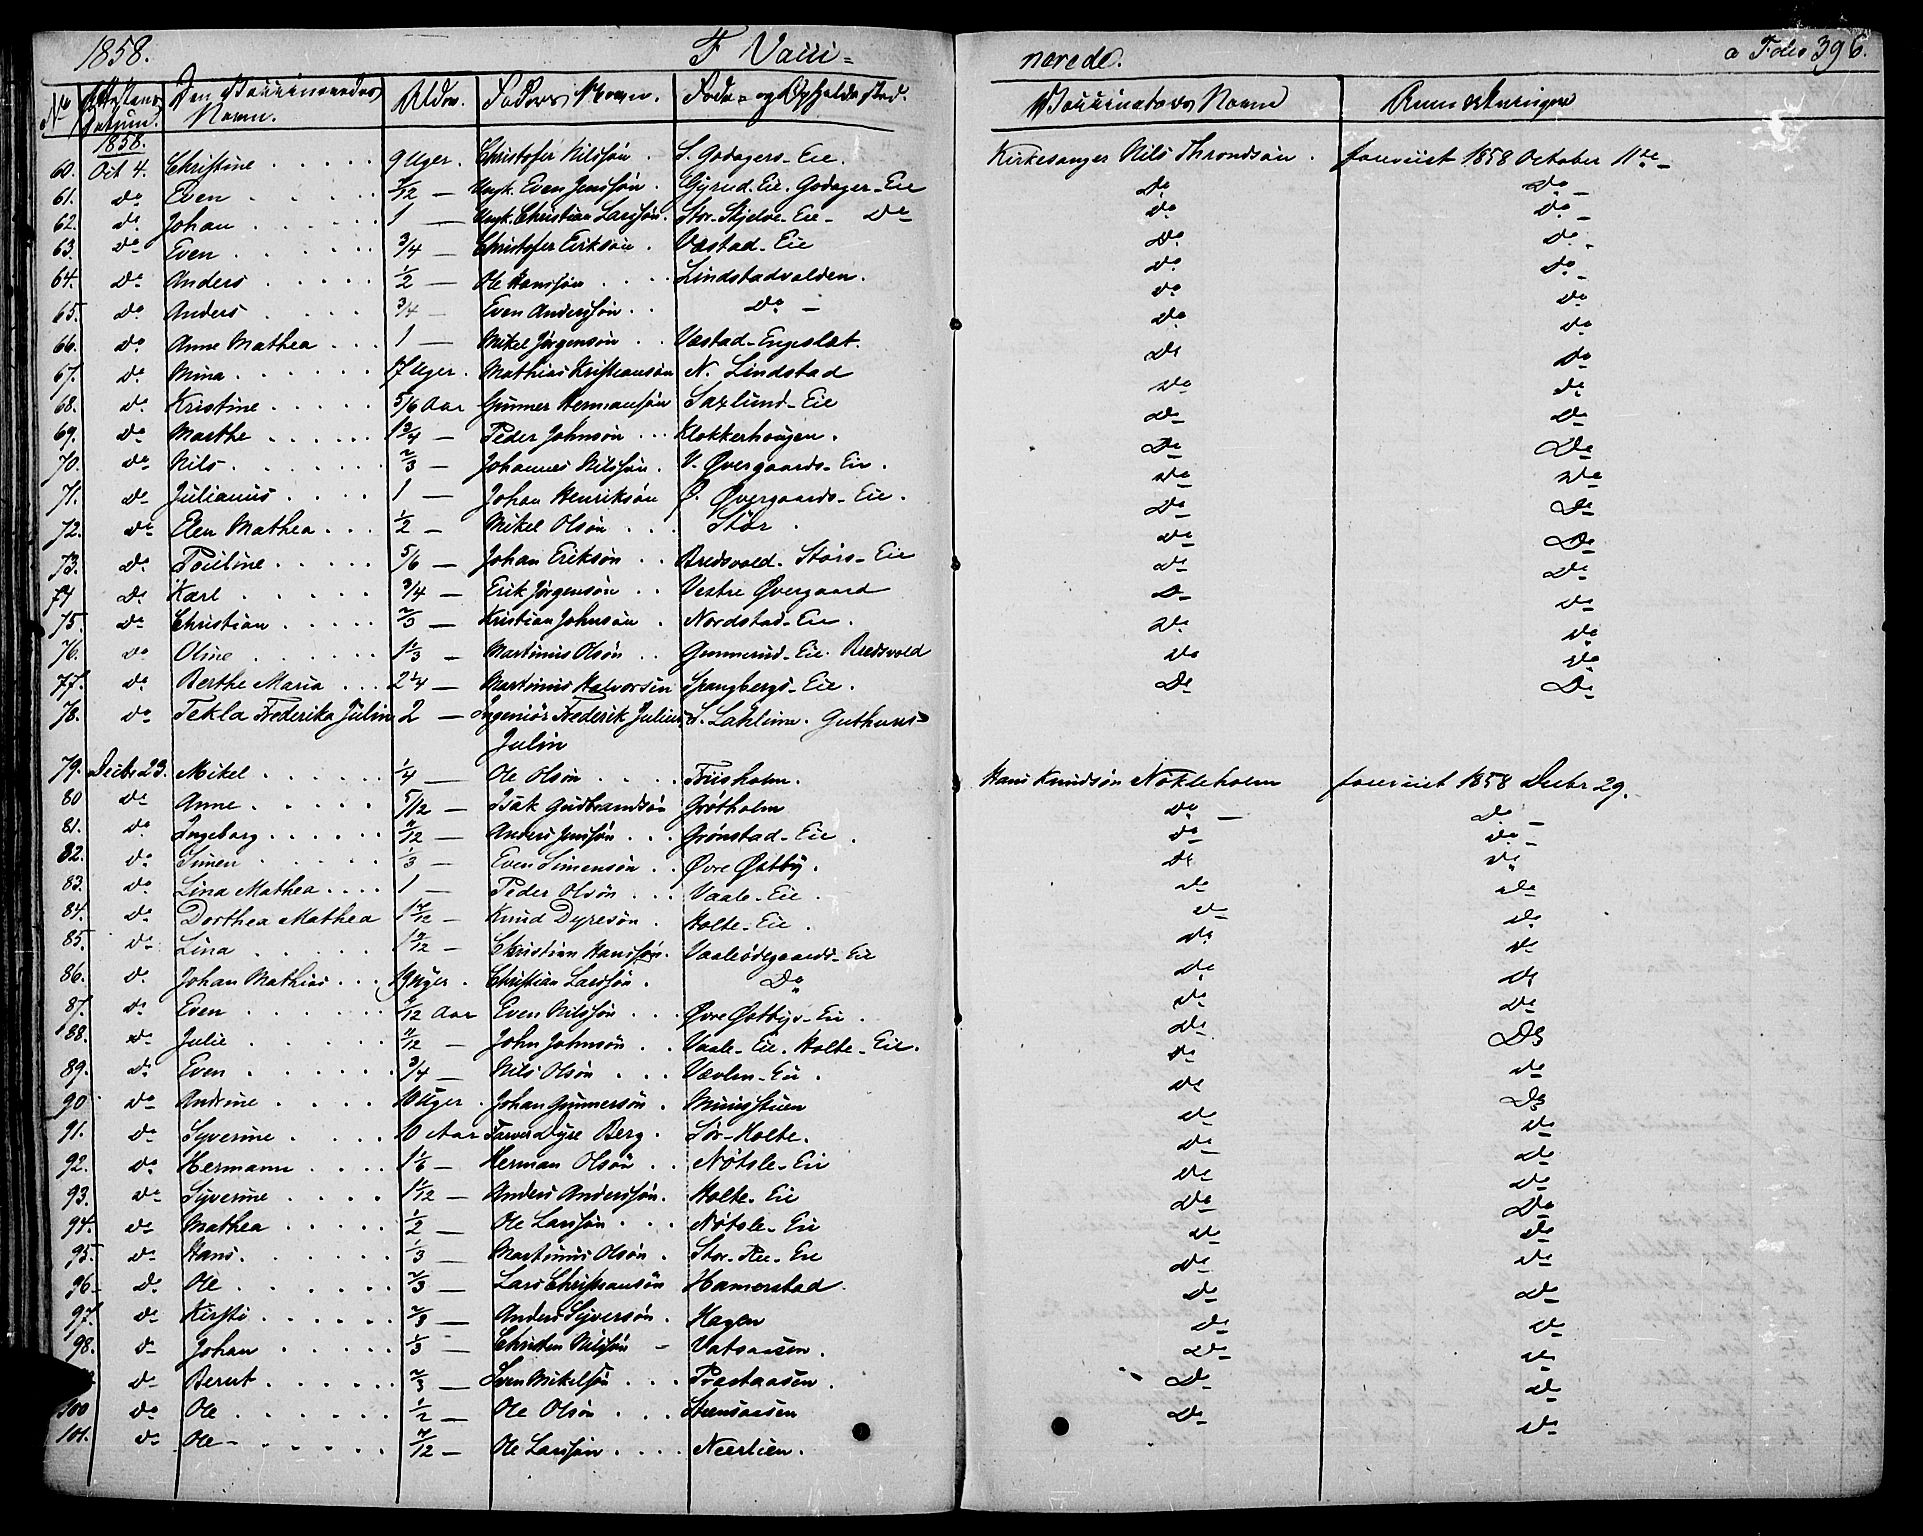 1858. F Vacci= nerede. a Folio 396.
No Attestens Datum. Den Vaccineredes Navn. Alder. Faders Navn. Føde- og Opholds sted. Vaccinateurs Navn Anmærkninger
1858.
60. Oct 4. Christine 9 Uger. Christofer Nilssøn. S. Godagers-Eie. Kirkesanger Nils Throndsøn. fonviist 1858 October 11te
61. do Even /12 — Ungk. Even Jenssøn. Gjerud-Eie. Godager-Eie do do
62. do Johan 1 — Ungk. Christian Larssøn. Stor-Skjelve-Eie- do do do
63. do Even 3/4 — Christofer Eriksøn. Væstad-Eie do do
64. do Anders 1/2 — Ole Hanssøn Lindstadvolden. do do
65. do Anders 3/4 — Even Anderssøn do do do
66. do Anne Mathea 1 — Mikel Jørgensøn Væstad-Engeslæt. do do
67. do Mina 17 Uger. Mathias Kristiansøn N. Lindstad do do
68. do Kristine 5/6 Aar Gunner Hermansøn Saxlund-Eie do do
69. do Marthe 1 3/4 — Peder Johnsøn Klokkerhougen. do do
70. do Nils 2/3 — Johannes Nilssøn. V. Øvergaards-Eie. do do
71. do Julianus 1 — Johan Henriksøn Ø. Øvergaards-Eie. do do
72. do Elen Mathea 1/2 — Mikel Olsøn Stor. do do
73. do Pauline 5/6 — Johan Eriksøn Bredsvold. Stors-Eie do do
74 do Karl 3/4 — Erik Jørgensøn Vestre Øvergaard do do
75. do Christian 2/3 — Kristian Johnsøn. Nordstad-Eie. do do
76. do Oline 1 1/3 — Martinus Olsøn Gunnerud-Eie. Bredsvold do do
77. do Berthe Maria 2 1/4 — Martinus Halvorsen Spangbergs-Eie. do do
78. do Tekla Frederika Julin 2 — Ingeniør Frederik Julius S. Lahlum. Guthuus
Julin
79. Decbr 29. Mikel 1/4 — Ole Olsøn Friisholm. Hans Knudsøn Nøkleholm fonviist 1858 Decbr 29.
80 do Anne 5/12 — Isak Gudbrandsøn Grøtholm do do
81. do Ingeborg 7/12 — Anders Jenssøn Grønstad-Eie. do do
82. do Simen 1/3 — Even Simensøn Øvre Østby. do do
83. do Lina Mathea 1 — Peder Olsøn Vaale-Eie. do do
84. do Dorthea Mathea 1 7/12 — Knud Dyresøn. Holte-Eie. do do
85. do Lina 1 /12 — Christian Hanssøn. Vaaleødegaards-Eie do do
86. do Johan Mathias 19 Uger. Christian Larssøn. do do do
87. do Even /12 Aar Even Nilssøn Øvre Østbys-Eie. do do
88. do Julie /12 — John Johnsøn Vaale-Eie. Holte-Eie. do do
89. do Even 3/4 — Nils Olsøn Vævlen-Eie. do do
90. do Andrine 10 Uger. Johan Gunnersøn. Muusstuen do do
91. do Syverine 10 Aar Farver Dyre Berg. Sør-Holte. do do
92. do Hermann 1 1/6 — Herman Olsøn Nøtsle-Eie do do
93. do Syverine 1 /12 — Anders Anderssøn. Holte-Eie do do
94. do Mathea 1/2 — Ole Larssøn Nøtsle-Eie do do
95. do Hans. 1/3 — Martinus Olsøn. Stor-Ree-Eie do do
96 do Ole 2/3 — Lars Christiansøn Hamerstad. do do
97. do Kirsti 2/3 — Anders Syversøn. Hagen do do
98. do Johan 1/3 — Christen Nilssøn Vatsaasen. do do
do Berut 2/3 — Sven Mikelsøn Prastaasen. do do
100 do Ole 1/2 — Ole Olsøn Steensaasen do do
101. do Ole 7/12 — Ole Larssøn Neerlien.